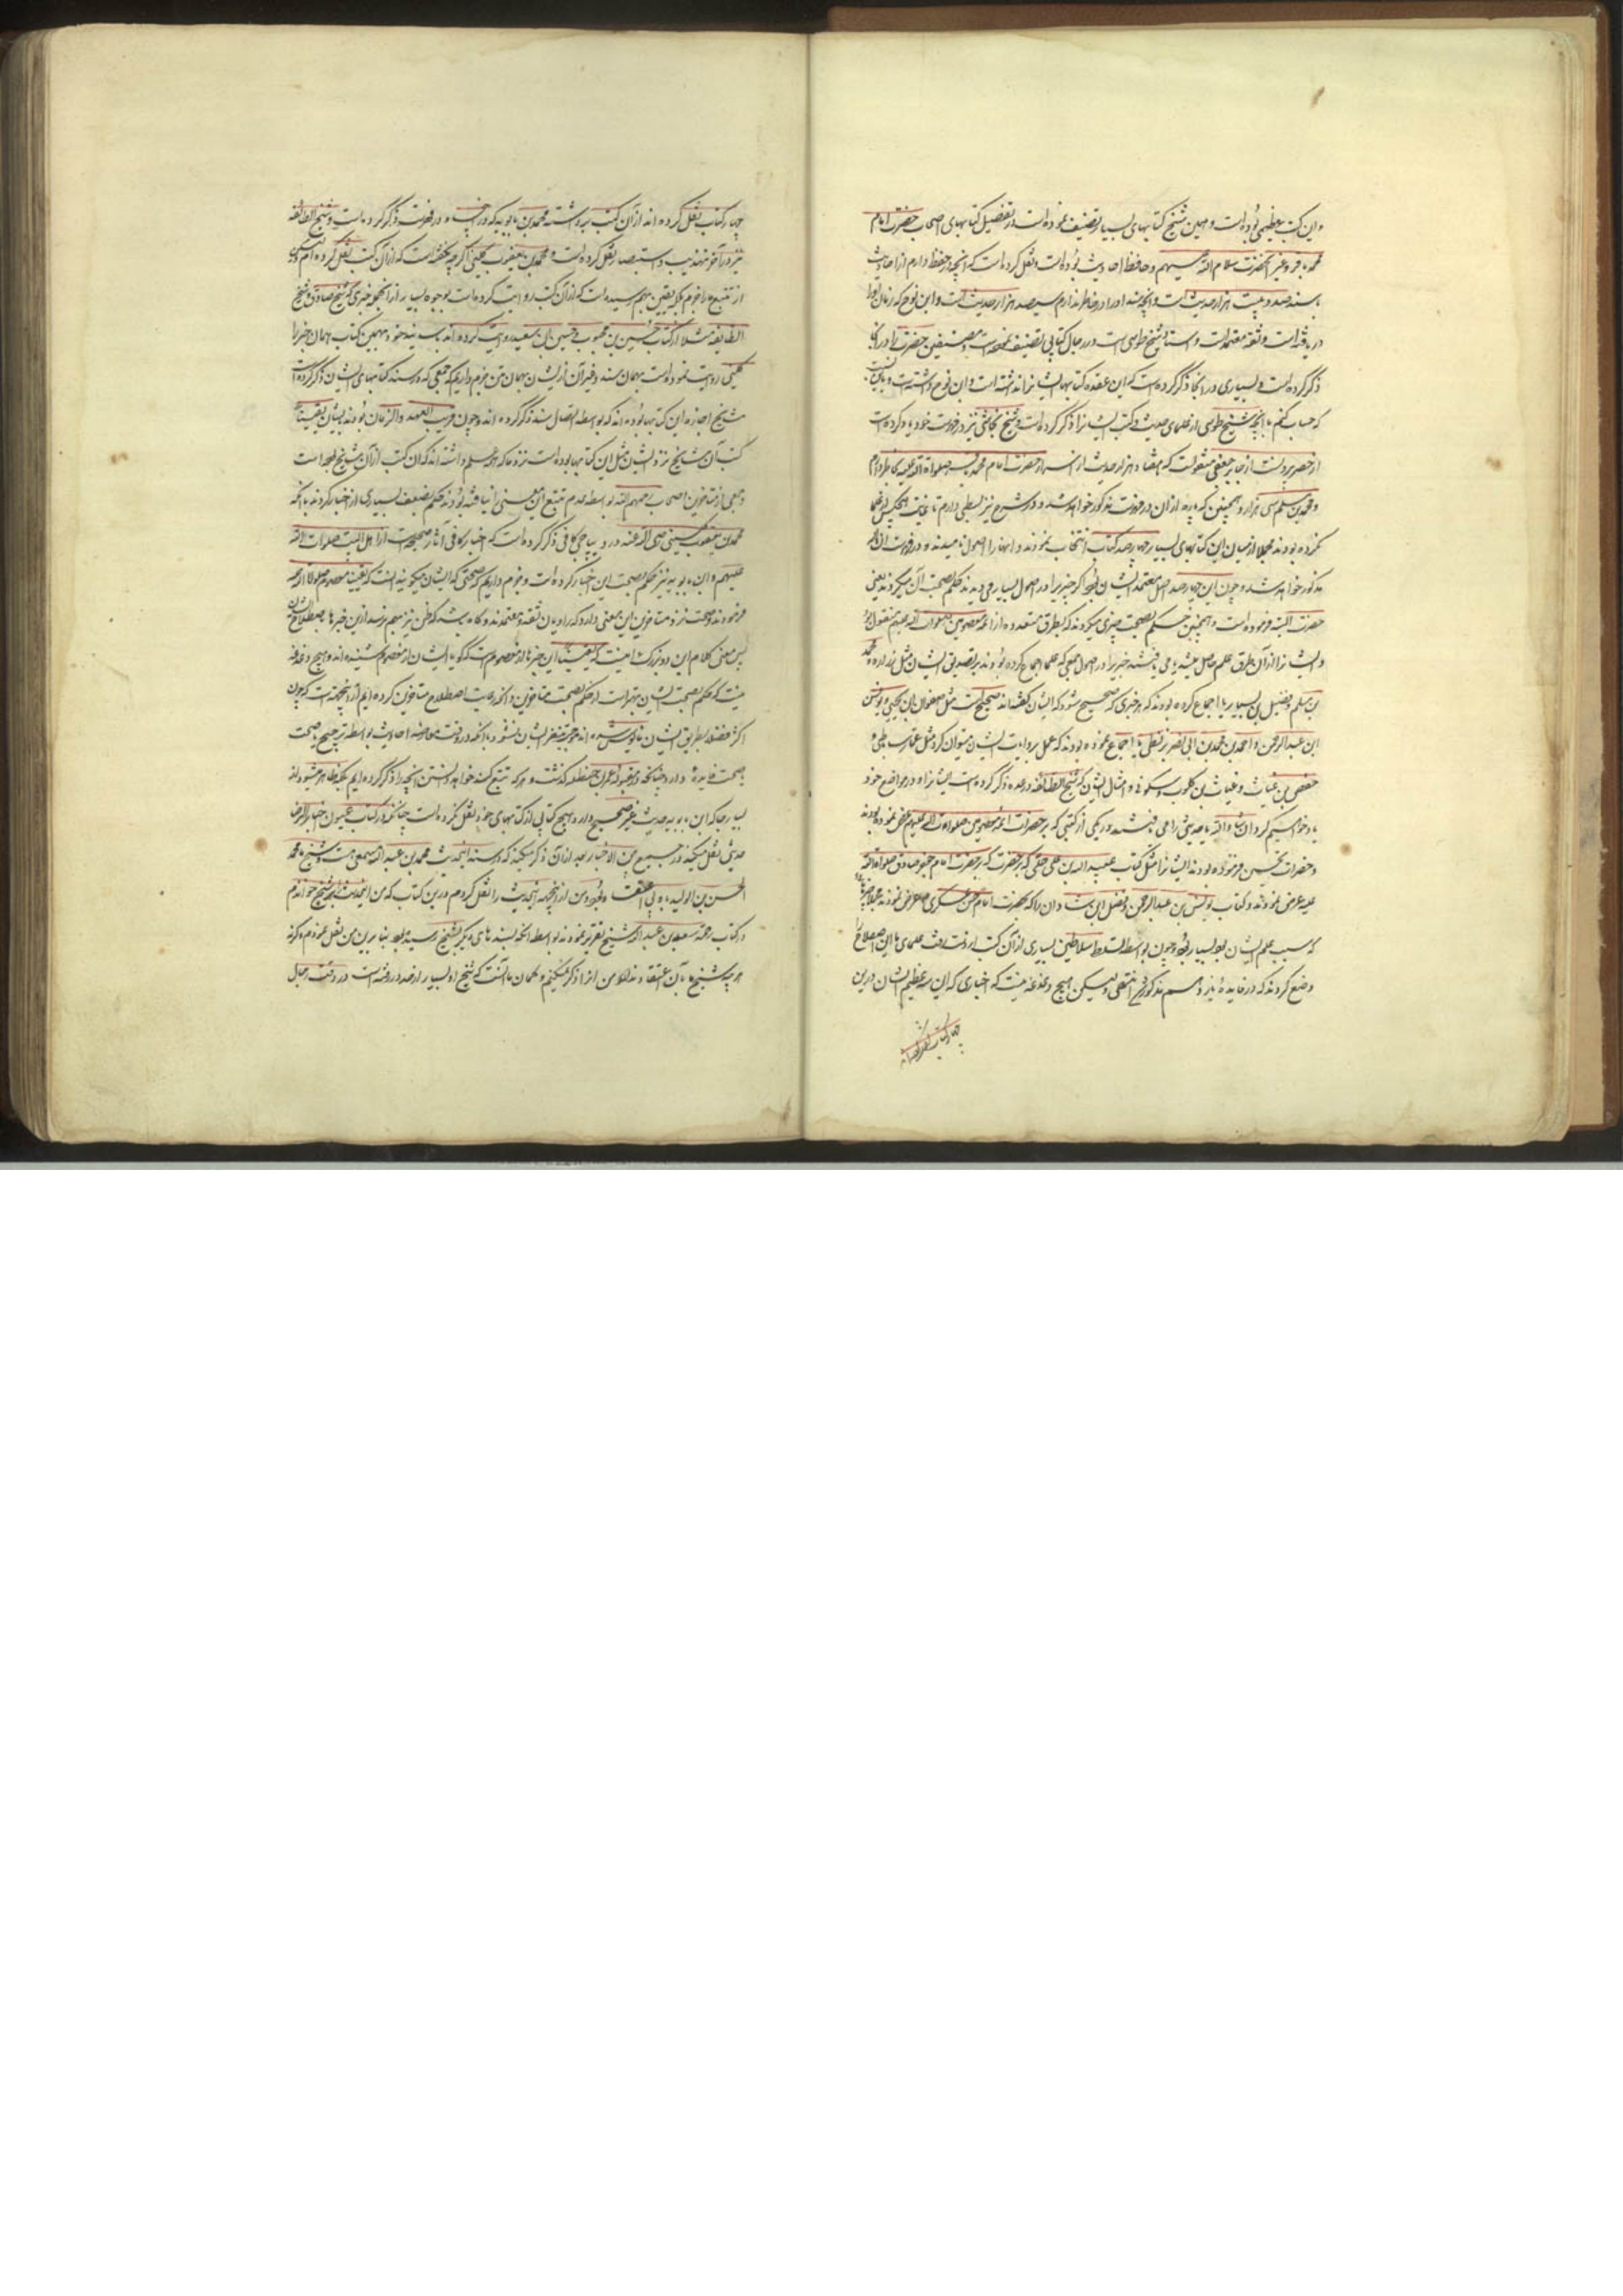 و این کتب عظیمی بوده است و همین شیخ کتابهای بسیار تصنیف نموده است در تفضیل کتابهای اصحاب حضرت امام
محمد باقر و غیر آنحضرت سلام الله علیهم و حافظ احادیث بوده است و نقل کرده است که آنچه در حفظ دارم از احادیث
با سند صد و بیست هزار حدیث است و آنچه سند او را در خاطر ندارم سیصد هزار حدیث است و ابن نوح که زمان او را
دریافته است و ثقه معتمد است و استاد شیخ طوسی است در رجال کتابی تصنیف نموده است و مصنفین حضرت را در آنجا
ذکر کرده است و بسیاری را در آنجا ذکر کرده است که ابن عقده کتابهای ایشانرا نداشته است و ابن نوح داشته است و
که حساب کنم با آنچه شیخ طوسی از علمای حدیث و کتب ایشانرا ذکر کرده است و شیخ نجاشی نیز در فهرست خود یاد کرده است
از حصر بیرونست از جابر جعفی منقولست که هفتاد هزار حدیث از اسرار حضرت امام محمد باقر صلوات الله علیه بخاطر دارم
و محمد بن مسلم سی هزار و همچنین که پاره از آن در فهرست مذکور خواهد شد و در شرح نیز بسطی دارم تا بغایت هیچکس از علما
نکرده بودند مجملا از میان این کتابهای بسیار چهارصد کتاب انتخاب نمودند و اینها را اصول نامیدند و در فهرست
مذکور خواهد شد و چون این چهارصد اصل معتمد ایشان بود اگر خبری را در اصول بسیار می دیدند حکم بصحت آن میکردند یعنی
حضرت البته فرموده است و همچنین حکم بصحت خبری میکردند که بطرق متعدده از ائمه معصومین صلوات الله علیهم منقول بود
و ایشانرا از آن طرق علم حاصل میشد یا می یافتند خبری را در اصول جمعی که علما اجماع کرده بودند بر تصدیق ایشان مثل زراره و محمد
بن مسلم و فضیل بن یسار یا اجماع کرده بودند که هر خبری که صحیح شود که ایشان گفته اند صحیح است مثل صفوان ابن یحیی و یونس
ابن عبد الرحمن و احمد بن محمد بن ابی نصر بزنطی یا اجماع نموده بودند که عمل بروایت ایشان میتوان کرد مثل عمار ساباطی و
حفص بن غیاث و غیاث بن کلوب و سکونی و امثال ایشان که شیخ الطائفه در عده ذکر کرده است ایشانرا و در مواضع خود
یاد خواهیم کرد ان شاء الله یا حدیثی را می یافتند در یکی از کتبی که بر حضرات ائمه معصومین صلوات الله علیهم عرض نموده بودند
و حضرات تحسین فرموده بودند ایشانرا مثل کتاب عبید الله بن علی حلبی که بر حضرت امام جعفر صادق صلوات الله
علیه عرض نمودند و کتاب یونس بن عبد الرحمن و فضل ابن شاذان را که بحضرت امام حسن عسکری ص عرض نمودند مجملا چیزها
که سبب علم ایشان بود بسیار بود و چون بواسطه تسلط سلاطین بسیاری از آن کتب از دست رفت علمای ما این اصطلاح را
وضع کردند که در فایده یازدهم مذکور شد انتهی و لیکن هیچ دغدغه نیست که اخباری که این سه عظیم الشان درین
چهار کتاب نقل کرده اند
چهار کتاب نقل کرده اند از آن کتب برداشته محمد بن بابویه که در اینجا و در فهرست ذکر کرده است و شیخ الطائفه
نیز در آخر تهذیب و استبصار نقل کرده است و محمد بن یعقوب کلینی اگر چه نگفته است که از آن کتب نقل کرده ام و لیکن
از تتبع ما را جزم بلکه یقین بهم رسیده است که از آن کتب روایت کرده است بوجوه بسیار از آنجمله خبری که شیخ صدوق و شیخ
الطائفه مثلا از کتاب حسن بن محبوب و حسین بن سعید روایت کرده اند باسانید خود و بهمین کتاب همان خبر را
کلینی روایت نموده است بهمان سند و غیر آن از ایشان بهمان متن جزم داریم که جمعی که در سند کتابهای ایشان ذکر کرده است
مشایخ اجازه این کتابها بوده اند که بواسطه اتصال سند ذکر کرده اند و چون قریب العهد و الزمان بودند بایشان یقینا
کتب آن مشایخ نزد ایشان مثل این کتابها بوده است نزد ما که همه مسلم داشته اند که آن کتب از آن مشایخ بوده است
و جمعی از متاخرین اصحاب رحمهم الله بواسطه عدم تتبع این معنی را نیافته بودند حکم بضعف بسیاری از اخبار کردند با آنکه
محمد بن یعقوب کلینی رضی الله عنه در دیباچه کافی ذکر کرده است که اخبار کافی آثار صحیحه است از اهل البیت صلوات الله
علیهم و ابن بابویه نیز حکم بصحت این اخبار کرده است و جزم داریم که صحتی که ایشان میگویند آنست که یقینا معصوم صلوات الله علیه
فرموده و صحت نزد متاخرین این معنی دارد که راویان ثقه و معتمدند و گاه باشد که ظن نیز بهم نرسد ازین خبرها باصطلاح ایشان
پس معنی کلام این دو بزرگ اینست که یقینا این خبرها از معصوم است که گویا ایشان از معصوم شنیده اند و هیچ دغدغه
نیست که حکم بصحت ایشان بهتر است از حکم بصحت متاخرین و آنکه رعایت اصطلاح متاخرین کرده ایم از آنجهتست که چون
اکثر فضلا بطریق ایشان مانوس شده اند موجب تنفر ایشان نشود با آنکه در وقت معارضه احادیث بواسطه ترجیح یا صحت
بصحت فایده دارد چنانکه در مقبوله عمر بن حنظله گذشت و هر که تتبع کند خواهد دانستن آنچه را ذکر کرده ایم بلکه ظاهر میشود از
بسیار جا که ابن بابویه حدیث غیر صحیح در هیچ کتابی از کتابهای خود نقل نکرده است چنانکه در کتاب عیون اخبار الرضا
حدیثی نقل میکند در جمیع بین الاخبار بعد از آن ذکر میکند که در سند این حدیث محمد بن عبد الله مسمعی هست و شیخ ما محمد بن
الحسن بن الولید باو بی اعتقاد بود و من از آنجهت اینحدیث را نقل کردم درین کتاب که من اینحدیث را بر شیخ خواندم
در کتاب رحمه سعد بن عبد الله و شیخ تقریر نمودند بواسطه آنکه بسندهای دیگر بشیخ رسیده بود بنا برین من نقل نمودم و گرنه
هر چه شیخ ما بآن اعتقاد ندارد من آنرا ذکر نمیکنم و گمان ما آنست که شیخ او بسیار از حد در رفته است در دقت رجال